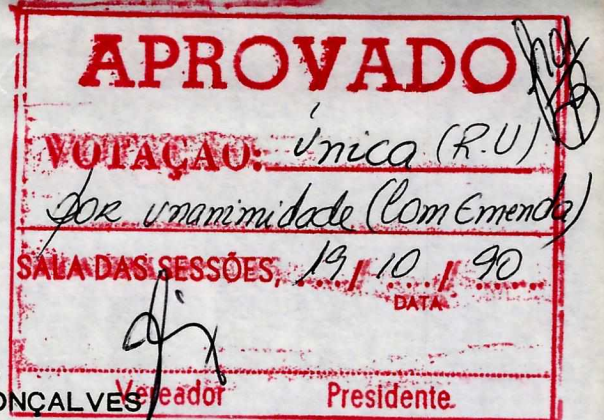 APROVADO
VOTAÇÃO: Única (R.U)
por unanimidade (Com Emenda)
SALA DAS SESSÕES, 19 / 10 / 90
DATA
ONÇALVES Vereador Presidente.